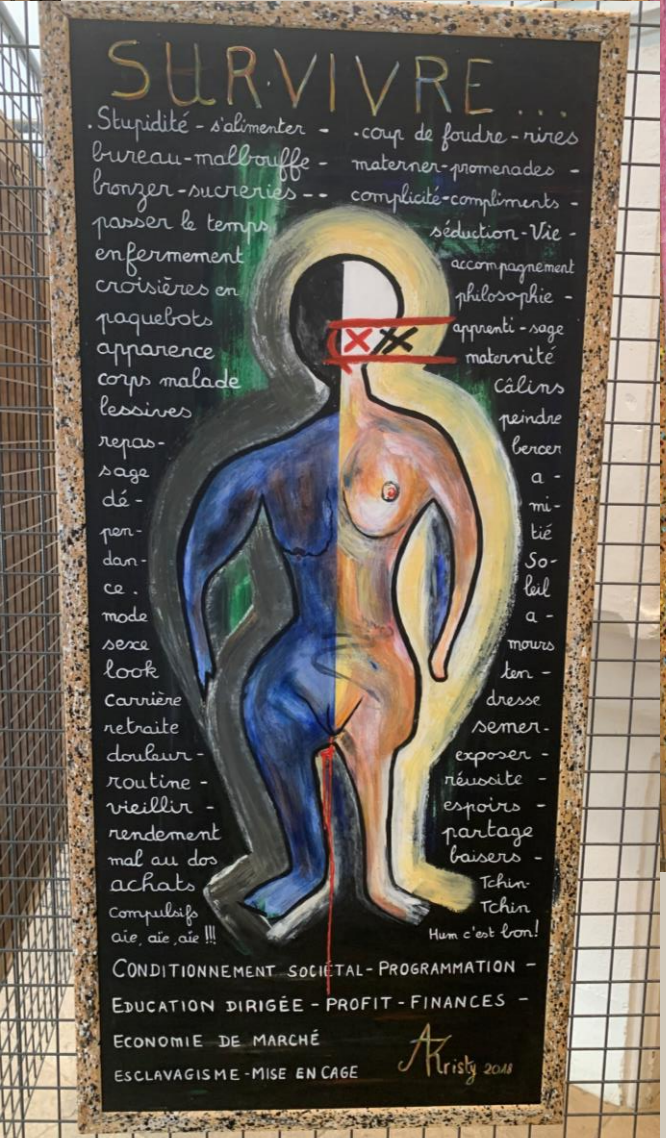 SURVIVRE...
.Stupidité - s'alimenter -
bureau-malbouffe -
bronzer-sucreries --
passer le temps
enfermement
croisières en
paquebots
apparence
corps malade
lessives
repas-
sage
dé-
pen-
dan-
ce.
mode
sexe
look
Carrière
retraite
douleur-
routine -
vieillir -
rendement
mal au dos
achats
Compulsifs
aïe, aïe, aïe !!!
.coup de foudre-rires
materner-promenades -
complicité-compliments -
séduction-Vie -
accompagnement
philosophie -
apprenti-sage
maternité
Câlins
peindre
bercer
a -
mi-
tié
So-
leil
a -
mours
ten -
dresse
semer-
exposer -
réussite -
espoirs -
partage
baisers -
Tchin-
Tchin
Hum c'est bon!
CONDITIONNEMENT SOCIÉTAL-PROGRAMMATION -
EDUCATION DIRIGÉE - PROFIT-FINANCES -
ECONOMIE DE MARCHÉ
ESCLAVAGISME-MISE EN CAGE
AKristy 2018